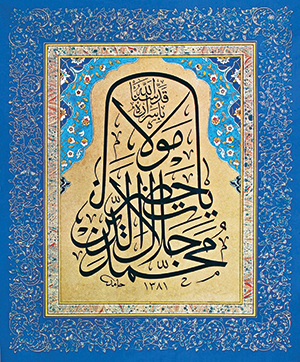 يا حضرت مولانا
محمد جلال الدين
قدسنا الله
باسراره
حامد ١٣٨١